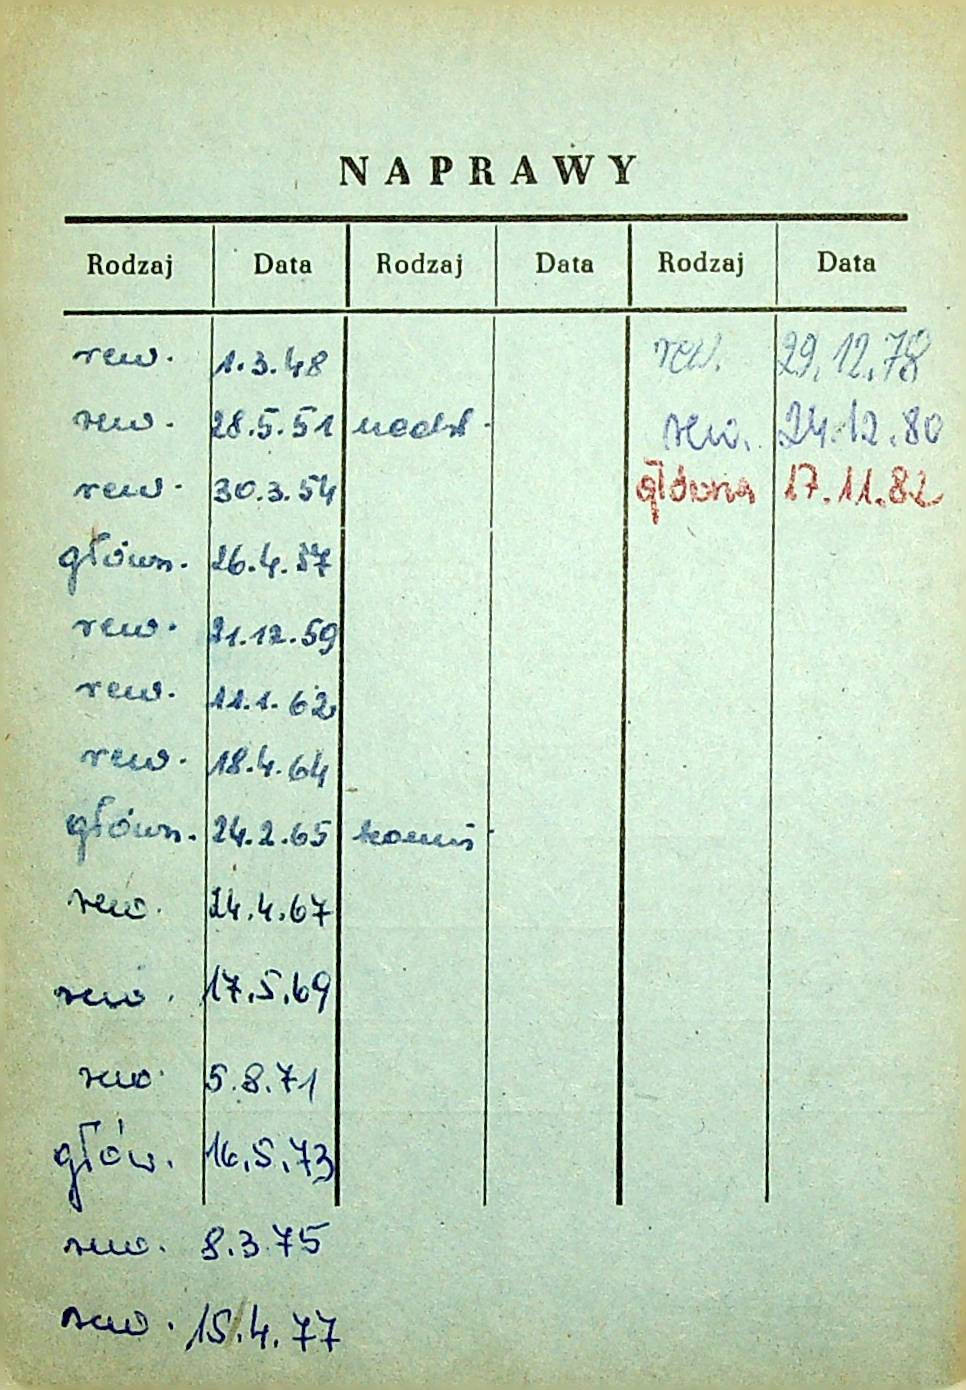 NAPRAWY
Rodzaj Data Rodzaj Data Rodzaj Data
rew. 1.3.48 rew. 29.12.78
rew. 28.5.51 nadzl. rew. 24.12.80
rew. 30.3.54 główna 17.11.82
główn. 26.4.57
rew. 21.12.59
rew. 11.1.62
rew. 18.4.64
główn. 24.2.65
rew. 24.4.67
rew. 17.5.69
rew. 5.8.71
głów. 16.5.73
rew. 8.3.75
rew. 15.4.77